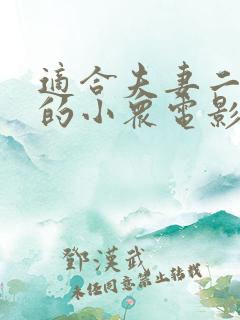 適合夫妻二
的小眾電影
鄧漢武
未经同意禁止转载